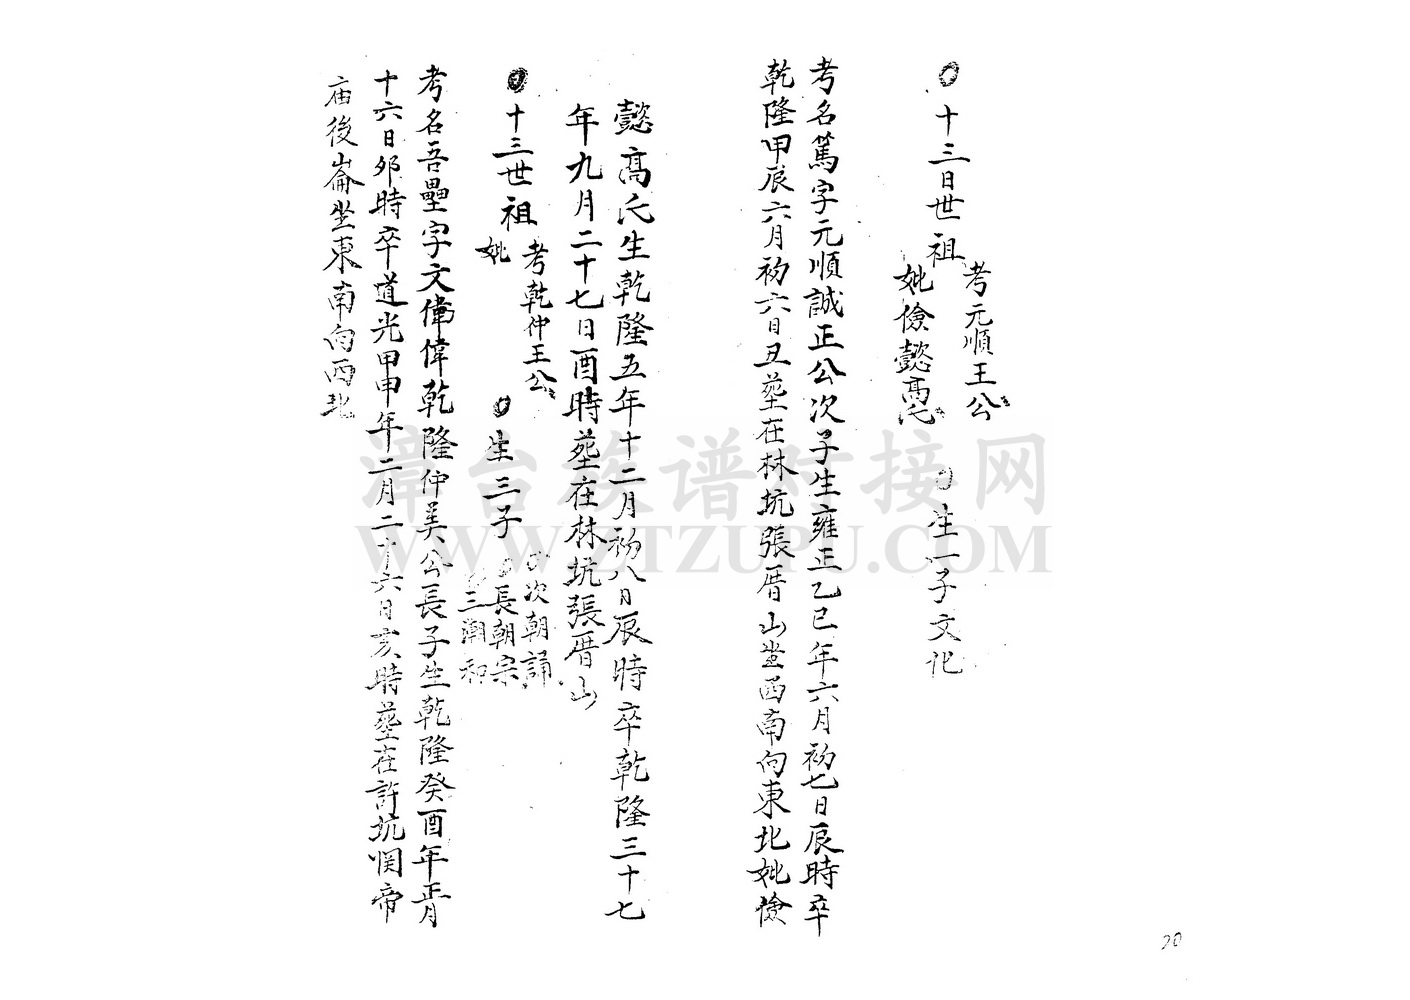 ○十三日世祖
考元順王公
妣儉懿髙氏
○生一子文化
考名篤字元順誠正公次子生雍正乙巳年六月初七日辰時卒
乾隆甲辰六月初六日丑塟在林坑張厝山坐西南向東北妣儉
懿髙氏生乾隆五年十二月初八日辰時卒乾隆三十七
年九月二十七日酉時塟在林坑張厝山
○十三世祖
考乾仲王公
妣
○生三子
○次朝誦
○長朝宗
○三潮和
考名吾壘字文偉偉乾隆仲美公長子生乾隆癸酉年正月
十六日卯時卒道光甲申年二月二十六日亥時塟在許坑関帝
庙後崙坐東南向西北
漳台族谱对接网
WWW.ZTZUPU.COM
20